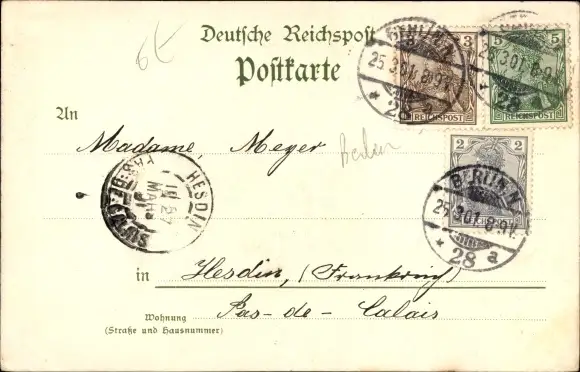 6£
Deutsche Reichspost
Postkarte
3
REICHSPOST
5
REICHSPOST
BERLIN N.
25.3.01. 8-9V.
* 28 a
25.3.01. 8-9V.
28
2
REICHSPOST
BERLIN N.
25.3.01. 8-9V.
* 28 a *
An
Madame, Meyer
Berlin
HESDIN
MARS
in
Hesdin, (Frankreich)
Pas-de-Calais
Wohnung
(Straße und Hausnummer)